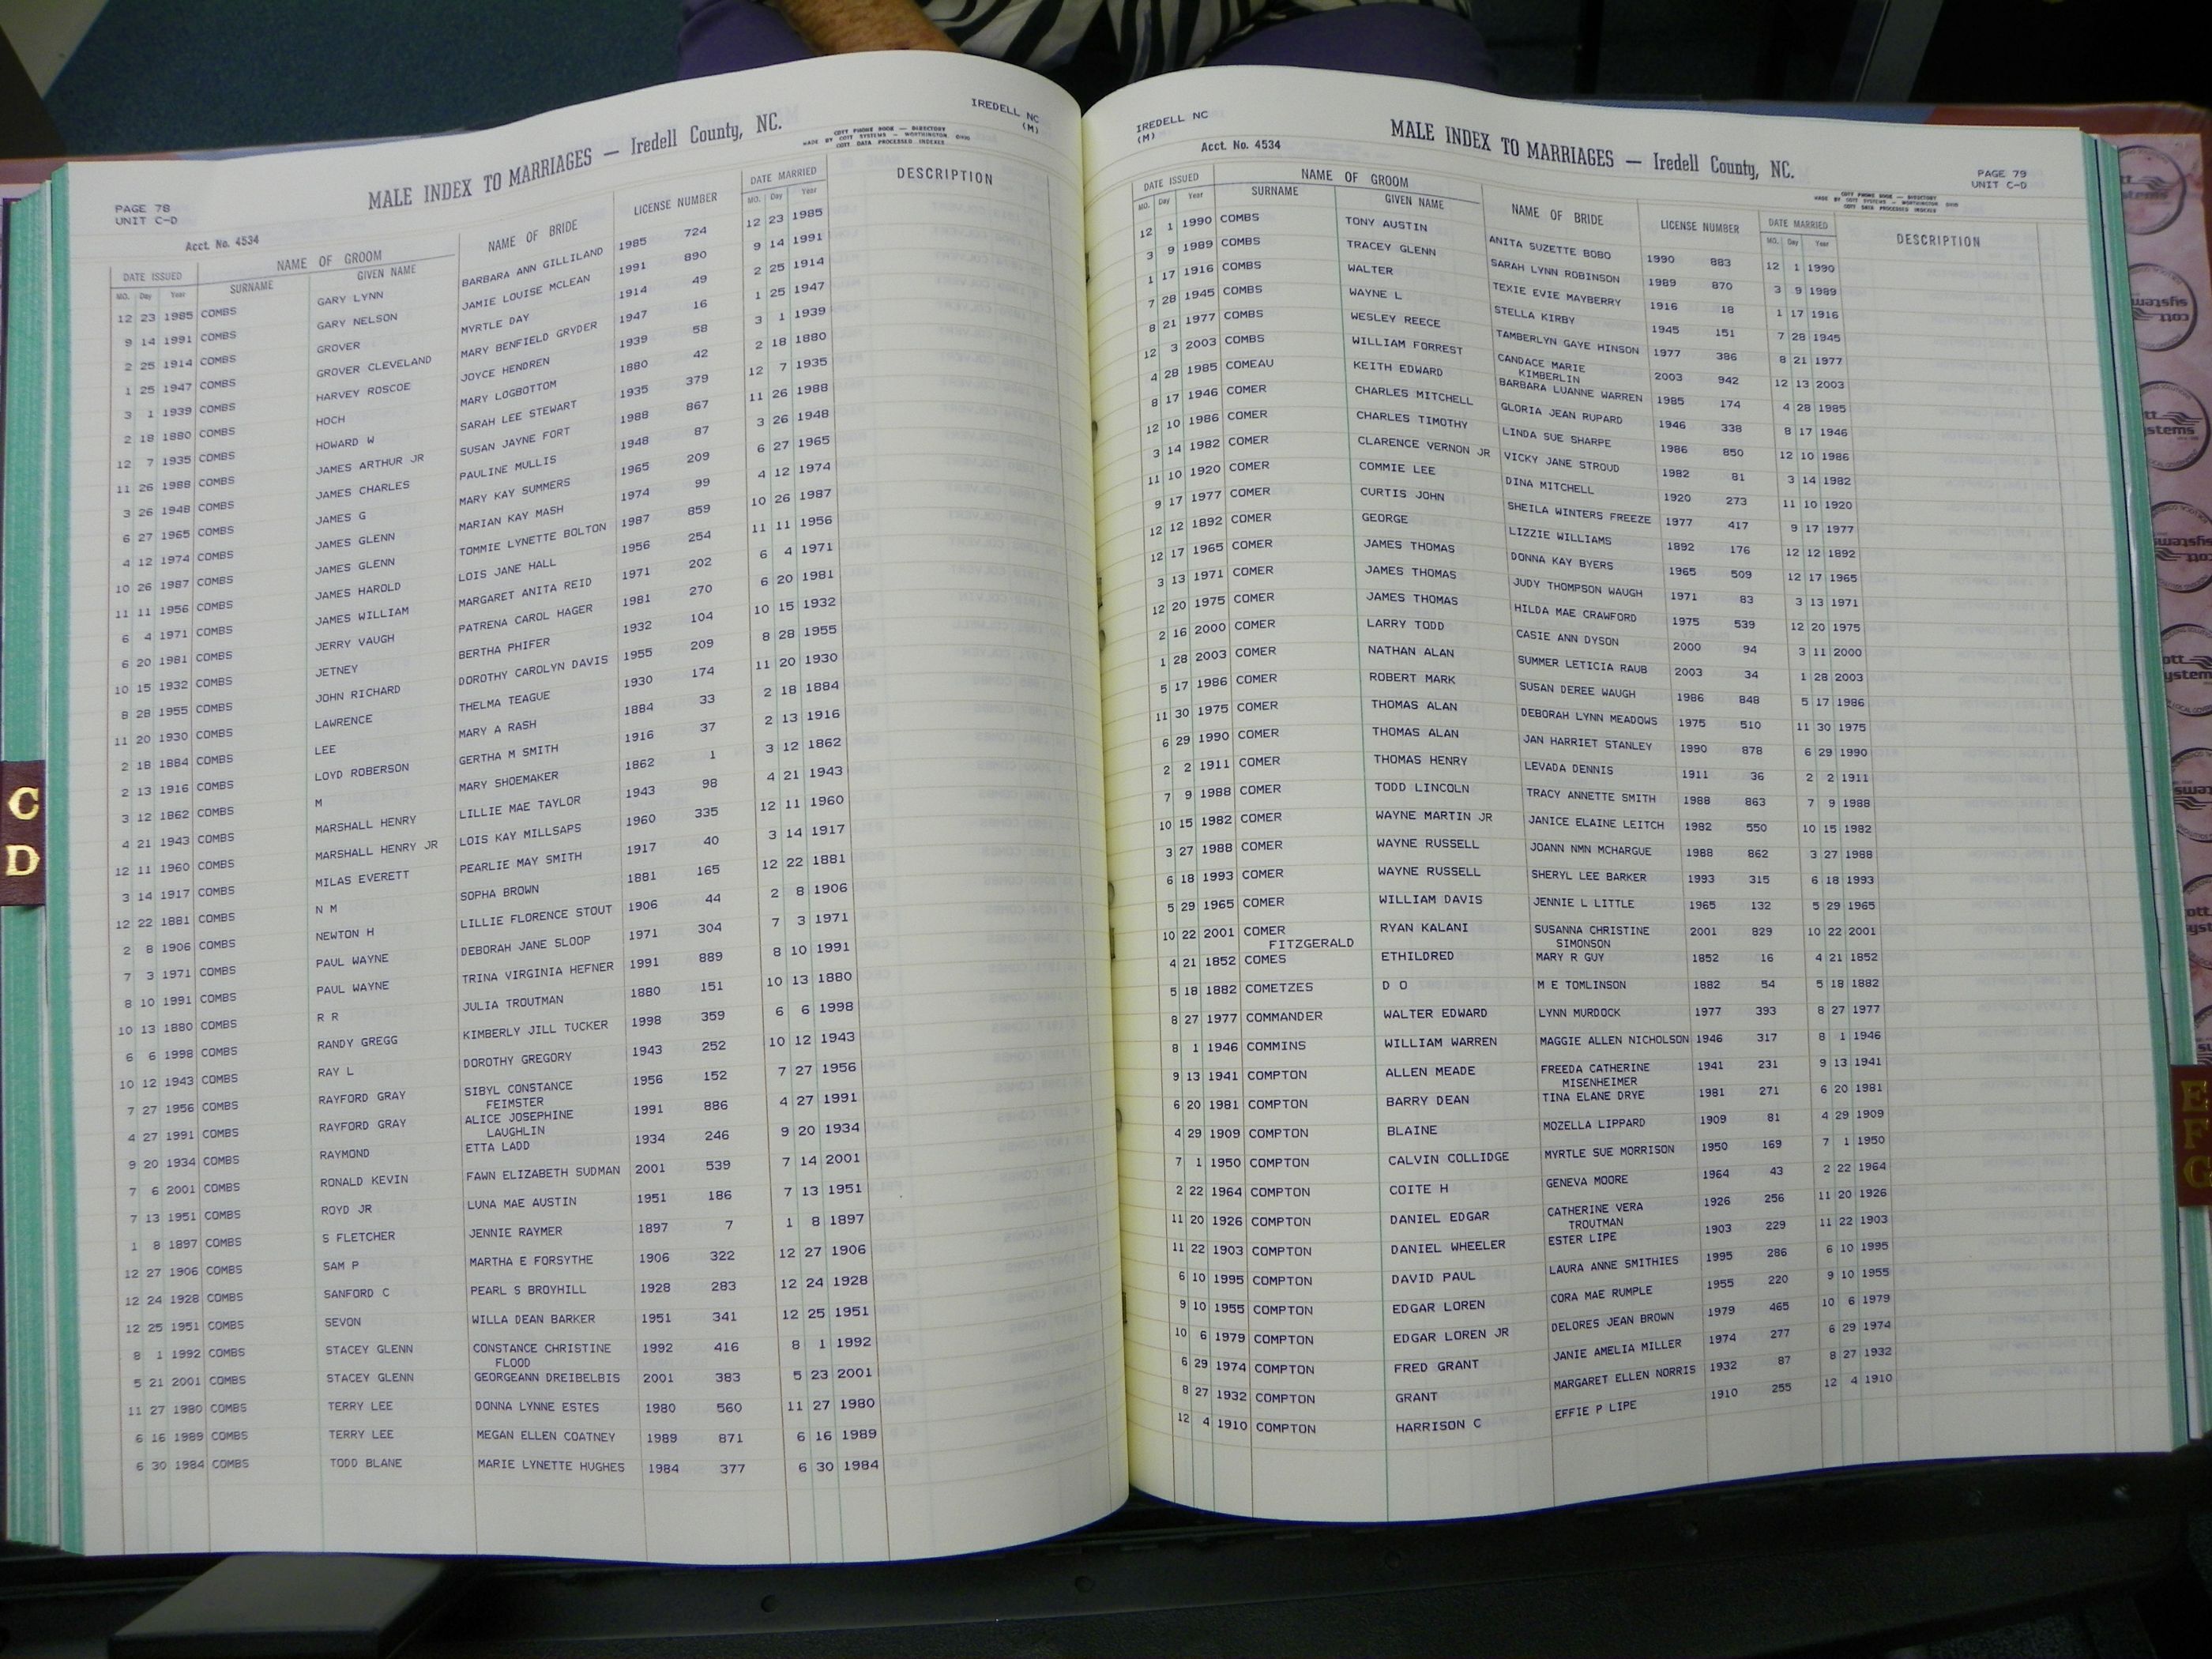 IREDELL NC
(M)
MALE INDEX TO MARRIAGES — Iredell County, NC.
COTT PHONE BOOK — DIRECTORY
MADE BY COTT SYSTEMS — WORTHINGTON OHIO
COTT DATA PROCESSED INDEXES
PAGE 78
UNIT C-D
Acct. No. 4534
DATE ISSUED NAME OF GROOM NAME OF BRIDE LICENSE NUMBER DATE MARRIED DESCRIPTION
MO. Day Year SURNAME GIVEN NAME MO. Day Year
12 23 1985 COMBS GARY LYNN BARBARA ANN GILLILAND 1985 724 12 23 1985
9 14 1991 COMBS GARY NELSON JAMIE LOUISE MCLEAN 1991 890 9 14 1991
2 25 1914 COMBS GROVER MYRTLE DAY 1914 49 2 25 1914
1 25 1947 COMBS GROVER CLEVELAND MARY BENFIELD GRYDER 1947 16 1 25 1947
3 1 1939 COMBS HARVEY ROSCOE JOYCE HENDREN 1939 58 3 1 1939
2 18 1880 COMBS HOCH MARY LOGBOTTOM 1880 42 2 18 1880
12 7 1935 COMBS HOWARD W SARAH LEE STEWART 1935 379 12 7 1935
11 26 1988 COMBS JAMES ARTHUR JR SUSAN JAYNE FORT 1988 867 11 26 1988
3 26 1948 COMBS JAMES CHARLES PAULINE MULLIS 1948 87 3 26 1948
6 27 1965 COMBS JAMES G MARY KAY SUMMERS 1965 209 6 27 1965
4 12 1974 COMBS JAMES GLENN MARIAN KAY MASH 1974 99 4 12 1974
10 26 1987 COMBS JAMES GLENN TOMMIE LYNETTE BOLTON 1987 859 10 26 1987
11 11 1956 COMBS JAMES HAROLD LOIS JANE HALL 1956 254 11 11 1956
6 4 1971 COMBS JAMES WILLIAM MARGARET ANITA REID 1971 202 6 4 1971
6 20 1981 COMBS JERRY VAUGH PATRENA CAROL HAGER 1981 270 6 20 1981
10 15 1932 COMBS JETNEY BERTHA PHIFER 1932 104 10 15 1932
8 28 1955 COMBS JOHN RICHARD DOROTHY CAROLYN DAVIS 1955 209 8 28 1955
11 20 1930 COMBS LAWRENCE THELMA TEAGUE 1930 174 11 20 1930
2 18 1884 COMBS LEE MARY A RASH 1884 33 2 18 1884
2 13 1916 COMBS LOYD ROBERSON GERTHA M SMITH 1916 37 2 13 1916
3 12 1862 COMBS M MARY SHOEMAKER 1862 1 3 12 1862
4 21 1943 COMBS MARSHALL HENRY LILLIE MAE TAYLOR 1943 98 4 21 1943
12 11 1960 COMBS MARSHALL HENRY JR LOIS KAY MILLSAPS 1960 335 12 11 1960
3 14 1917 COMBS MILAS EVERETT PEARLIE MAY SMITH 1917 40 3 14 1917
12 22 1881 COMBS N M SOPHA BROWN 1881 165 12 22 1881
2 8 1906 COMBS NEWTON H LILLIE FLORENCE STOUT 1906 44 2 8 1906
7 3 1971 COMBS PAUL WAYNE DEBORAH JANE SLOOP 1971 304 7 3 1971
8 10 1991 COMBS PAUL WAYNE TRINA VIRGINIA HEFNER 1991 889 8 10 1991
10 13 1880 COMBS R R JULIA TROUTMAN 1880 151 10 13 1880
6 6 1998 COMBS RANDY GREGG KIMBERLY JILL TUCKER 1998 359 6 6 1998
10 12 1943 COMBS RAY L DOROTHY GREGORY 1943 252 10 12 1943
7 27 1956 COMBS RAYFORD GRAY SIBYL CONSTANCE 1956 152 7 27 1956
FEIMSTER
4 27 1991 COMBS RAYFORD GRAY ALICE JOSEPHINE 1991 886 4 27 1991
LAUGHLIN
9 20 1934 COMBS RAYMOND ETTA LADD 1934 246 9 20 1934
7 6 2001 COMBS RONALD KEVIN FAWN ELIZABETH SUDMAN 2001 539 7 14 2001
7 13 1951 COMBS ROYD JR LUNA MAE AUSTIN 1951 186 7 13 1951
1 8 1897 COMBS S FLETCHER JENNIE RAYMER 1897 7 1 8 1897
12 27 1906 COMBS SAM P MARTHA E FORSYTHE 1906 322 12 27 1906
12 24 1928 COMBS SANFORD C PEARL S BROYHILL 1928 283 12 24 1928
12 25 1951 COMBS SEVON WILLA DEAN BARKER 1951 341 12 25 1951
8 1 1992 COMBS STACEY GLENN CONSTANCE CHRISTINE 1992 416 8 1 1992
FLOOD
5 21 2001 COMBS STACEY GLENN GEORGEANN DREIBELBIS 2001 383 5 23 2001
11 27 1980 COMBS TERRY LEE DONNA LYNNE ESTES 1980 560 11 27 1980
6 16 1989 COMBS TERRY LEE MEGAN ELLEN COATNEY 1989 871 6 16 1989
6 30 1984 COMBS TODD BLANE MARIE LYNETTE HUGHES 1984 377 6 30 1984
C
D
IREDELL NC
(M)
Acct. No. 4534
MALE INDEX TO MARRIAGES — Iredell County, NC.
PAGE 79
UNIT C-D
COTT PHONE BOOK — DIRECTORY
MADE BY COTT SYSTEMS — WORTHINGTON OHIO
COTT DATA PROCESSED INDEXES
DATE ISSUED NAME OF GROOM NAME OF BRIDE LICENSE NUMBER DATE MARRIED DESCRIPTION
MO. Day Year SURNAME GIVEN NAME MO. Day Year
12 1 1990 COMBS TONY AUSTIN ANITA SUZETTE BOBO 1990 883 12 1 1990
3 9 1989 COMBS TRACEY GLENN SARAH LYNN ROBINSON 1989 870 3 9 1989
1 17 1916 COMBS WALTER TEXIE EVIE MAYBERRY 1916 18 1 17 1916
7 28 1945 COMBS WAYNE L STELLA KIRBY 1945 151 7 28 1945
8 21 1977 COMBS WESLEY REECE TAMBERLYN GAYE HINSON 1977 386 8 21 1977
12 3 2003 COMBS WILLIAM FORREST CANDACE MARIE 2003 942 12 13 2003
KIMBERLIN
4 28 1985 COMEAU KEITH EDWARD BARBARA LUANNE WARREN 1985 174 4 28 1985
8 17 1946 COMER CHARLES MITCHELL GLORIA JEAN RUPARD 1946 338 8 17 1946
12 10 1986 COMER CHARLES TIMOTHY LINDA SUE SHARPE 1986 850 12 10 1986
3 14 1982 COMER CLARENCE VERNON JR VICKY JANE STROUD 1982 81 3 14 1982
11 10 1920 COMER COMMIE LEE DINA MITCHELL 1920 273 11 10 1920
9 17 1977 COMER CURTIS JOHN SHEILA WINTERS FREEZE 1977 417 9 17 1977
12 12 1892 COMER GEORGE LIZZIE WILLIAMS 1892 176 12 12 1892
12 17 1965 COMER JAMES THOMAS DONNA KAY BYERS 1965 509 12 17 1965
3 13 1971 COMER JAMES THOMAS JUDY THOMPSON WAUGH 1971 83 3 13 1971
12 20 1975 COMER JAMES THOMAS HILDA MAE CRAWFORD 1975 539 12 20 1975
2 16 2000 COMER LARRY TODD CASIE ANN DYSON 2000 94 3 11 2000
1 28 2003 COMER NATHAN ALAN SUMMER LETICIA RAUB 2003 34 1 28 2003
5 17 1986 COMER ROBERT MARK SUSAN DEREE WAUGH 1986 848 5 17 1986
11 30 1975 COMER THOMAS ALAN DEBORAH LYNN MEADOWS 1975 510 11 30 1975
6 29 1990 COMER THOMAS ALAN JAN HARRIET STANLEY 1990 878 6 29 1990
2 2 1911 COMER THOMAS HENRY LEVADA DENNIS 1911 36 2 2 1911
7 9 1988 COMER TODD LINCOLN TRACY ANNETTE SMITH 1988 863 7 9 1988
10 15 1982 COMER WAYNE MARTIN JR JANICE ELAINE LEITCH 1982 550 10 15 1982
3 27 1988 COMER WAYNE RUSSELL JOANN NMN MCHARGUE 1988 862 3 27 1988
6 18 1993 COMER WAYNE RUSSELL SHERYL LEE BARKER 1993 315 6 18 1993
5 29 1965 COMER WILLIAM DAVIS JENNIE L LITTLE 1965 132 5 29 1965
10 22 2001 COMER RYAN KALANI SUSANNA CHRISTINE 2001 829 10 22 2001
FITZGERALD SIMONSON
4 21 1852 COMES ETHILDRED MARY R GUY 1852 16 4 21 1852
5 18 1882 COMETZES D O M E TOMLINSON 1882 54 5 18 1882
8 27 1977 COMMANDER WALTER EDWARD LYNN MURDOCK 1977 393 8 27 1977
8 1 1946 COMMINS WILLIAM WARREN MAGGIE ALLEN NICHOLSON 1946 317 8 1 1946
9 13 1941 COMPTON ALLEN MEADE FREEDA CATHERINE 1941 231 9 13 1941
MISENHEIMER
6 20 1981 COMPTON BARRY DEAN TINA ELANE DRYE 1981 271 6 20 1981
4 29 1909 COMPTON BLAINE MOZELLA LIPPARD 1909 81 4 29 1909
7 1 1950 COMPTON CALVIN COLLIDGE MYRTLE SUE MORRISON 1950 169 7 1 1950
2 22 1964 COMPTON COITE H GENEVA MOORE 1964 43 2 22 1964
11 20 1926 COMPTON DANIEL EDGAR CATHERINE VERA 1926 256 11 20 1926
TROUTMAN
11 22 1903 COMPTON DANIEL WHEELER ESTER LIPE 1903 229 11 22 1903
6 10 1995 COMPTON DAVID PAUL LAURA ANNE SMITHIES 1995 286 6 10 1995
9 10 1955 COMPTON EDGAR LOREN CORA MAE RUMPLE 1955 220 9 10 1955
10 6 1979 COMPTON EDGAR LOREN JR DELORES JEAN BROWN 1979 465 10 6 1979
6 29 1974 COMPTON FRED GRANT JANIE AMELIA MILLER 1974 277 6 29 1974
8 27 1932 COMPTON GRANT MARGARET ELLEN NORRIS 1932 87 8 27 1932
12 4 1910 COMPTON HARRISON C EFFIE P LIPE 1910 255 12 4 1910
E
F
G